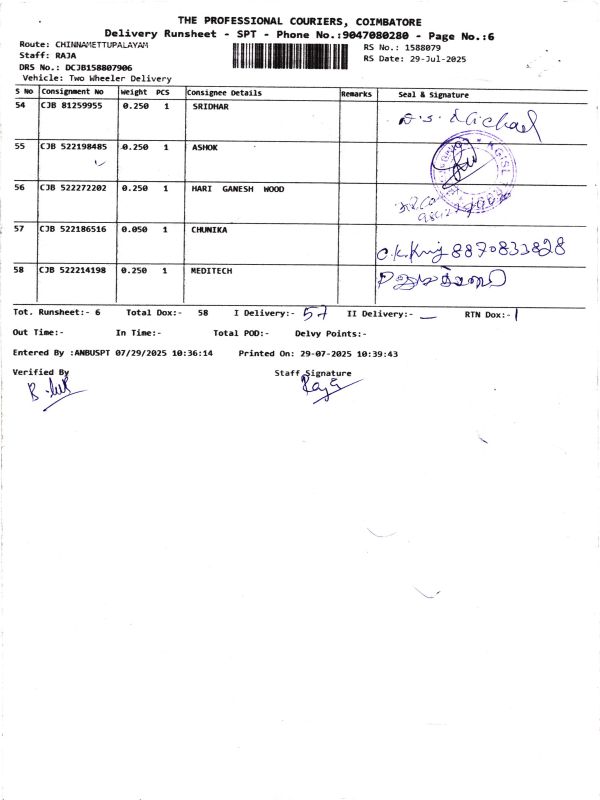 THE PROFESSIONAL COURIERS, COIMBATORE
Delivery Runsheet - SPT - Phone No.:9047080280 - Page No.:6
Route: CHINNAMETTUPALAYAM
RS No.: 1588079
Staff: RAJA
RS Date: 29-Jul-2025
DRS No.: DCJB158807906
Vehicle: Two Wheeler Delivery
S No Consignment No Weight PCS Consignee Details Remarks Seal & Signature
54 CJB 81259955 0.250 1 SRIDHAR
55 CJB 522198485 0.250 1 ASHOK
56 CJB 522272202 0.250 1 HARI GANESH WOOD
57 CJB 522186516 0.050 1 CHUNIKA 8870833828
58 CJB 522214198 0.250 1 MEDITECH
Tot. Runsheet:- 6 Total Dox:- 58 I Delivery:- 57 II Delivery:- — RTN Dox:- 1
Out Time:- In Time:- Total POD:- Delvy Points:-
Entered By :ANBUSPT 07/29/2025 10:36:14 Printed On: 29-07-2025 10:39:43
Verified By Staff Signature
Raja